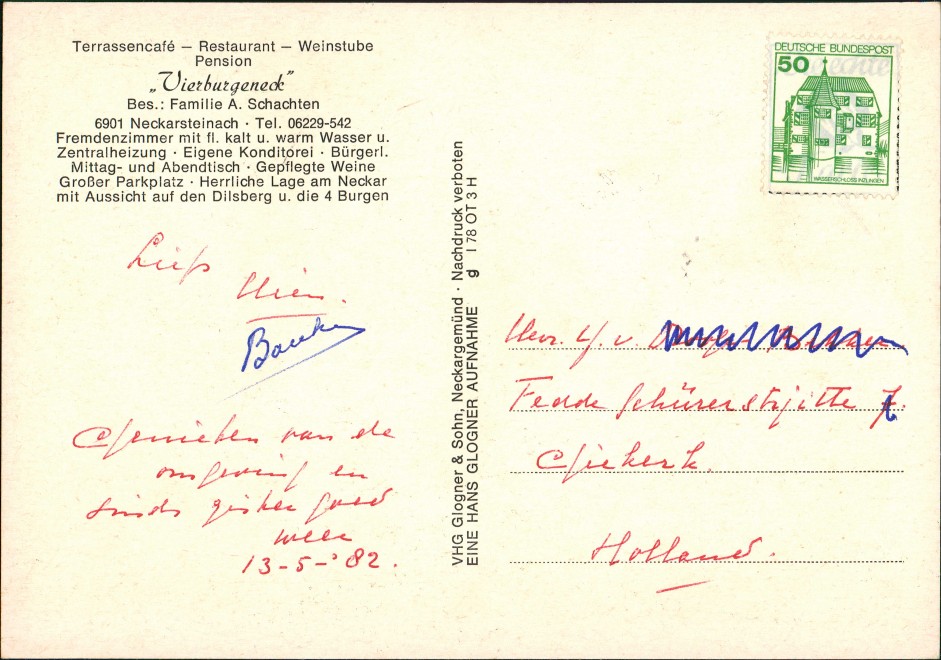 Terrassencafé – Restaurant – Weinstube
Pension
„Vierburgeneck"
Bes.: Familie A. Schachten
6901 Neckarsteinach · Tel. 06229-542
Fremdenzimmer mit fl. kalt u. warm Wasser u.
Zentralheizung · Eigene Konditorei · Bürgerl.
Mittag- und Abendtisch · Gepflegte Weine
Großer Parkplatz · Herrliche Lage am Neckar
mit Aussicht auf den Dilsberg u. die 4 Burgen
Liefs
Wien.
Genieten van de
omgeving en
sinds gister goed
weer
13-5-'82.
VHG Glogner & Sohn, Neckargemünd · Nachdruck verboten
EINE HANS GLOGNER AUFNAHME g I 78 OT 3 H
DEUTSCHE BUNDESPOST
50
WASSERSCHLOSS INZLINGEN
v
Fedde Schurerstrjitte
Holland.